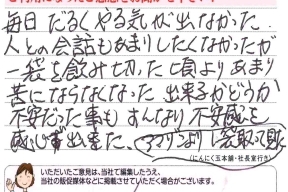 毎日だるくやる気が出なかった.
人との会話もあまりしたくなかったが
一袋を飲み切った頃よりあまり
苦にならなくなった 出来るかどうか
不安だった事も すんなり 不安感を
感じず出来た、アマゾンより一袋取って飲
(にんにく玉本舗・社長室行き)
いただいたご意見は、当社にて編集したうえ、
当社の販促媒体などに掲載させていただく場合がございます。